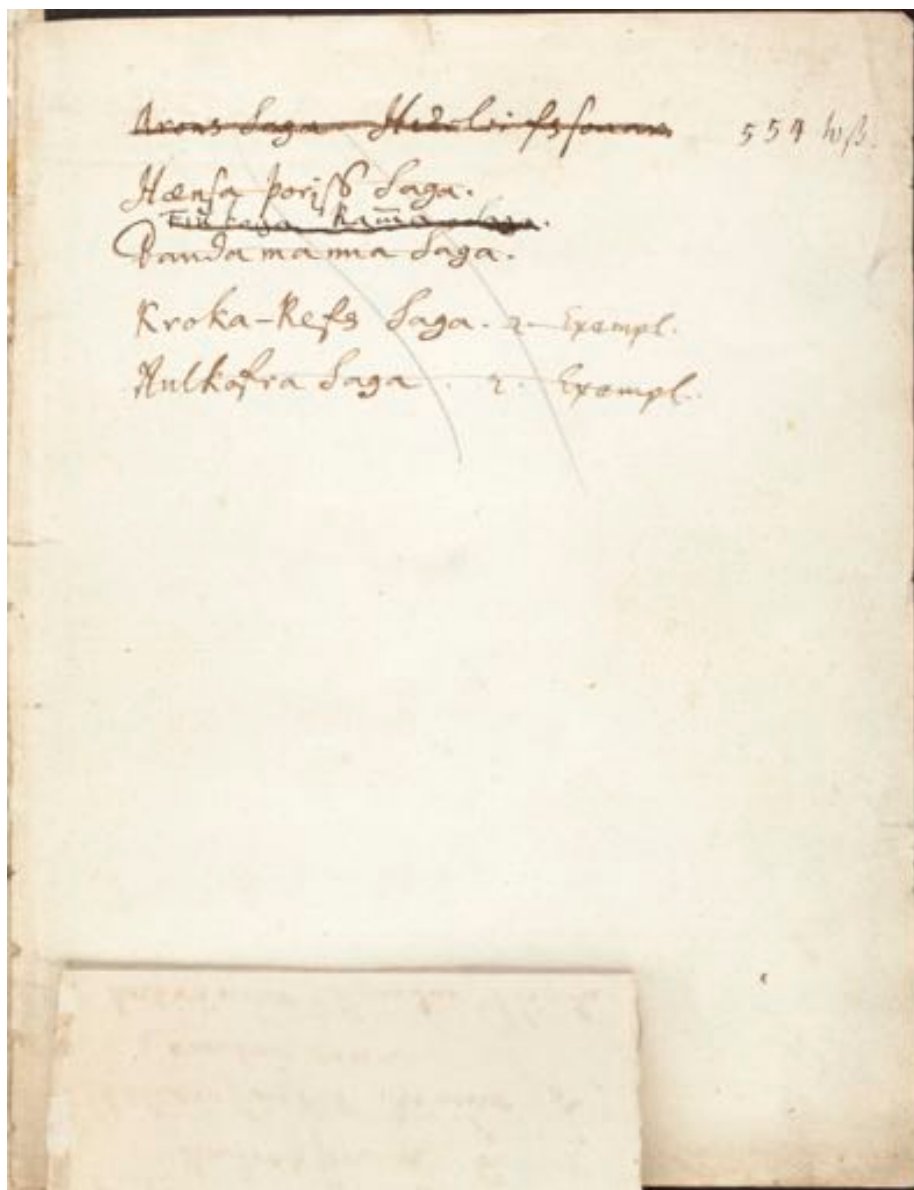 Arons Saga Hiorleifssonar 554 hβ.
Hænsa þoriss Saga.
Finboga Ram̅a Saga.
Bandamanna Saga.
Kroka-Refs Saga. 2. Exempl.
Aulkofra Saga. 2. Exempl.